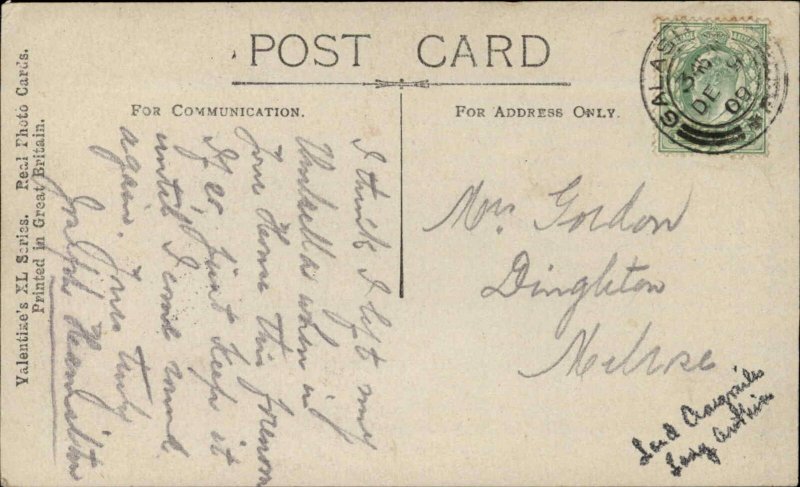 POST CARD
FOR COMMUNICATION.
FOR ADDRESS ONLY.
Valentine's XL Series. Real Photo Cards.
Printed in Great Britain.
GALASH
DE 9
09
I think I left my
Umbrella when in
your House this forenoon
If so, just keep it
until I come round
again. Yours truly
Joseph Hamilton
Mrs Gordon
Dingleton
Melrose
Lord Craigmiles
Lang